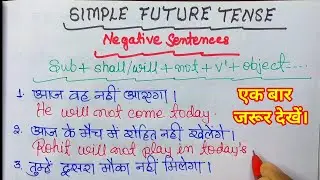 SIMPLE FUTURE TENSE
Negative Sentences
Sub + shall/will + not + v¹ + object....
1. आज वह नहीं आएगा।
He will not come today.
2. आज के मैच में रोहित नहीं खेलेंगे।
Rohit will not play in today's
3. तुम्हें दूसरा मौका नहीं मिलेगा।
एक बार
जरूर देखें।